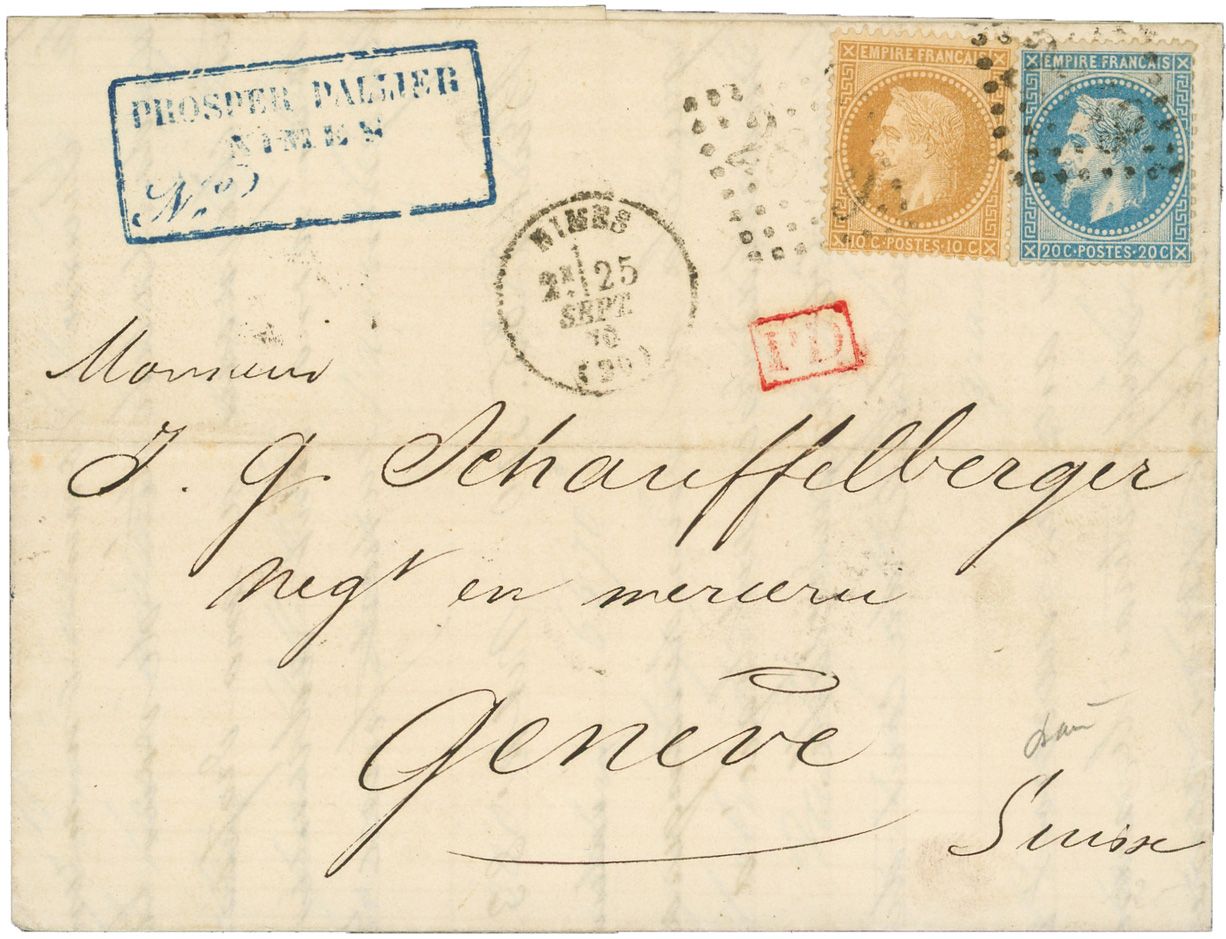 PROSPER PALLIER
NIMES
No
EMPIRE FRANÇAIS
10 C · POSTES · 10 C
EMPIRE FRANÇAIS
20 C · POSTES · 20 C
NIMES
2E 25
SEPT.
70
P.D.
Monsieur
J. G. Schauffelberger
Negt en mercerie
Genève
Suisse